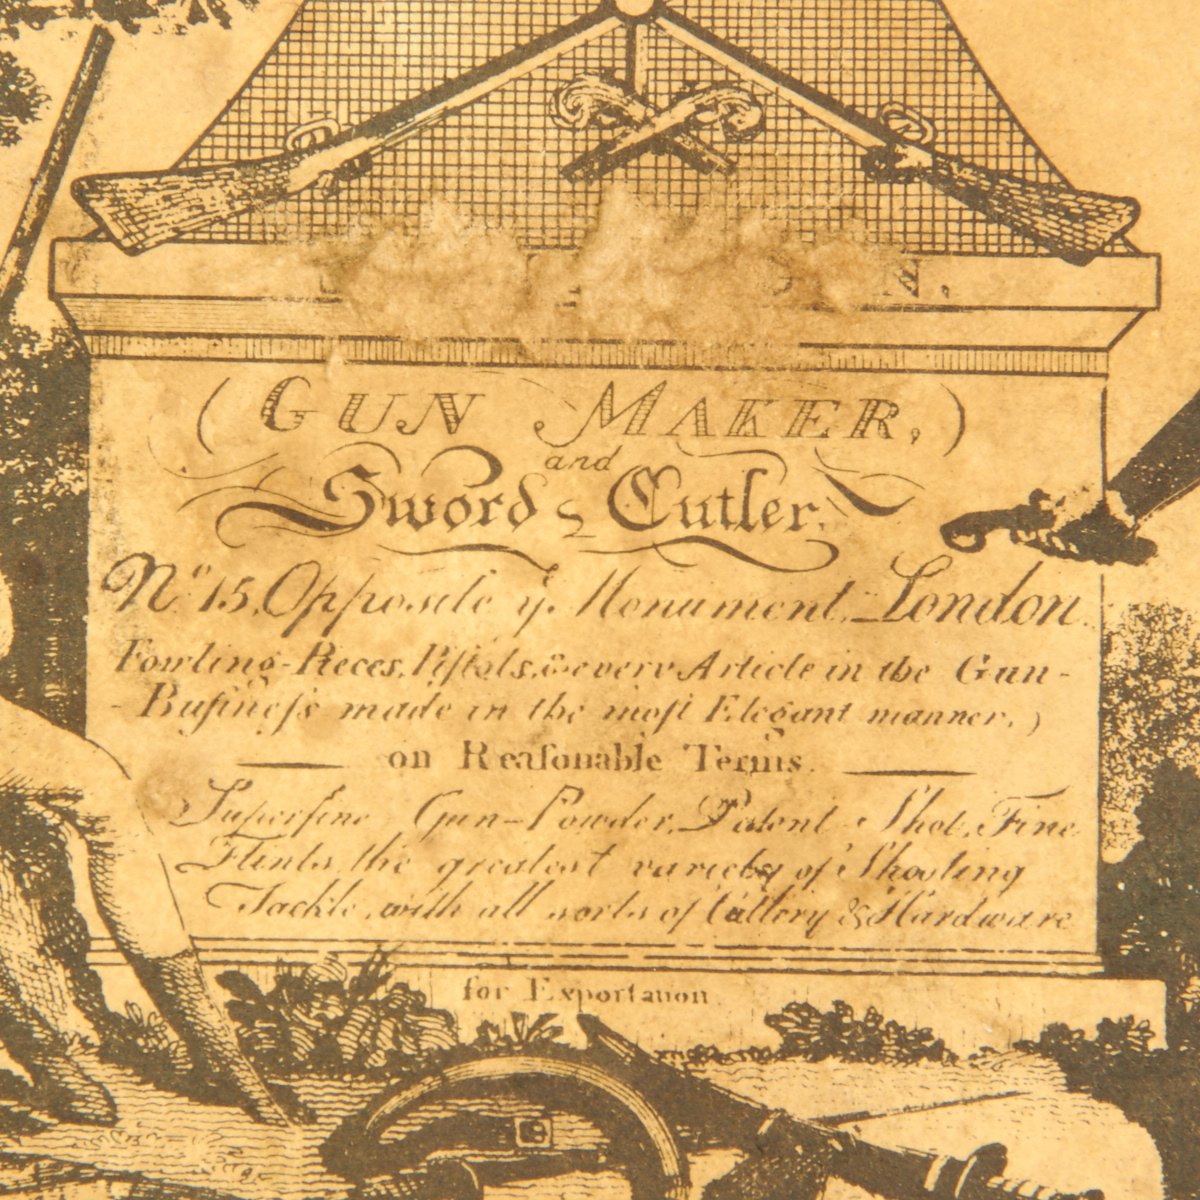 (GUN MAKER,)
and
Sword Cutler,
No. 15, Opposite ye. Monument, London
Fowling-Pieces, Piſtols, & every Article in the Gun-
-Buſineſs made in the moſt Elegant manner,)
on Reaſonable Terms.
Superfine Gun-Powder, Patent Shot, Fine
Flints, the greatest variety of Shooting
Tackle, with all sorts of Cutlery & Hardware
for Exportation